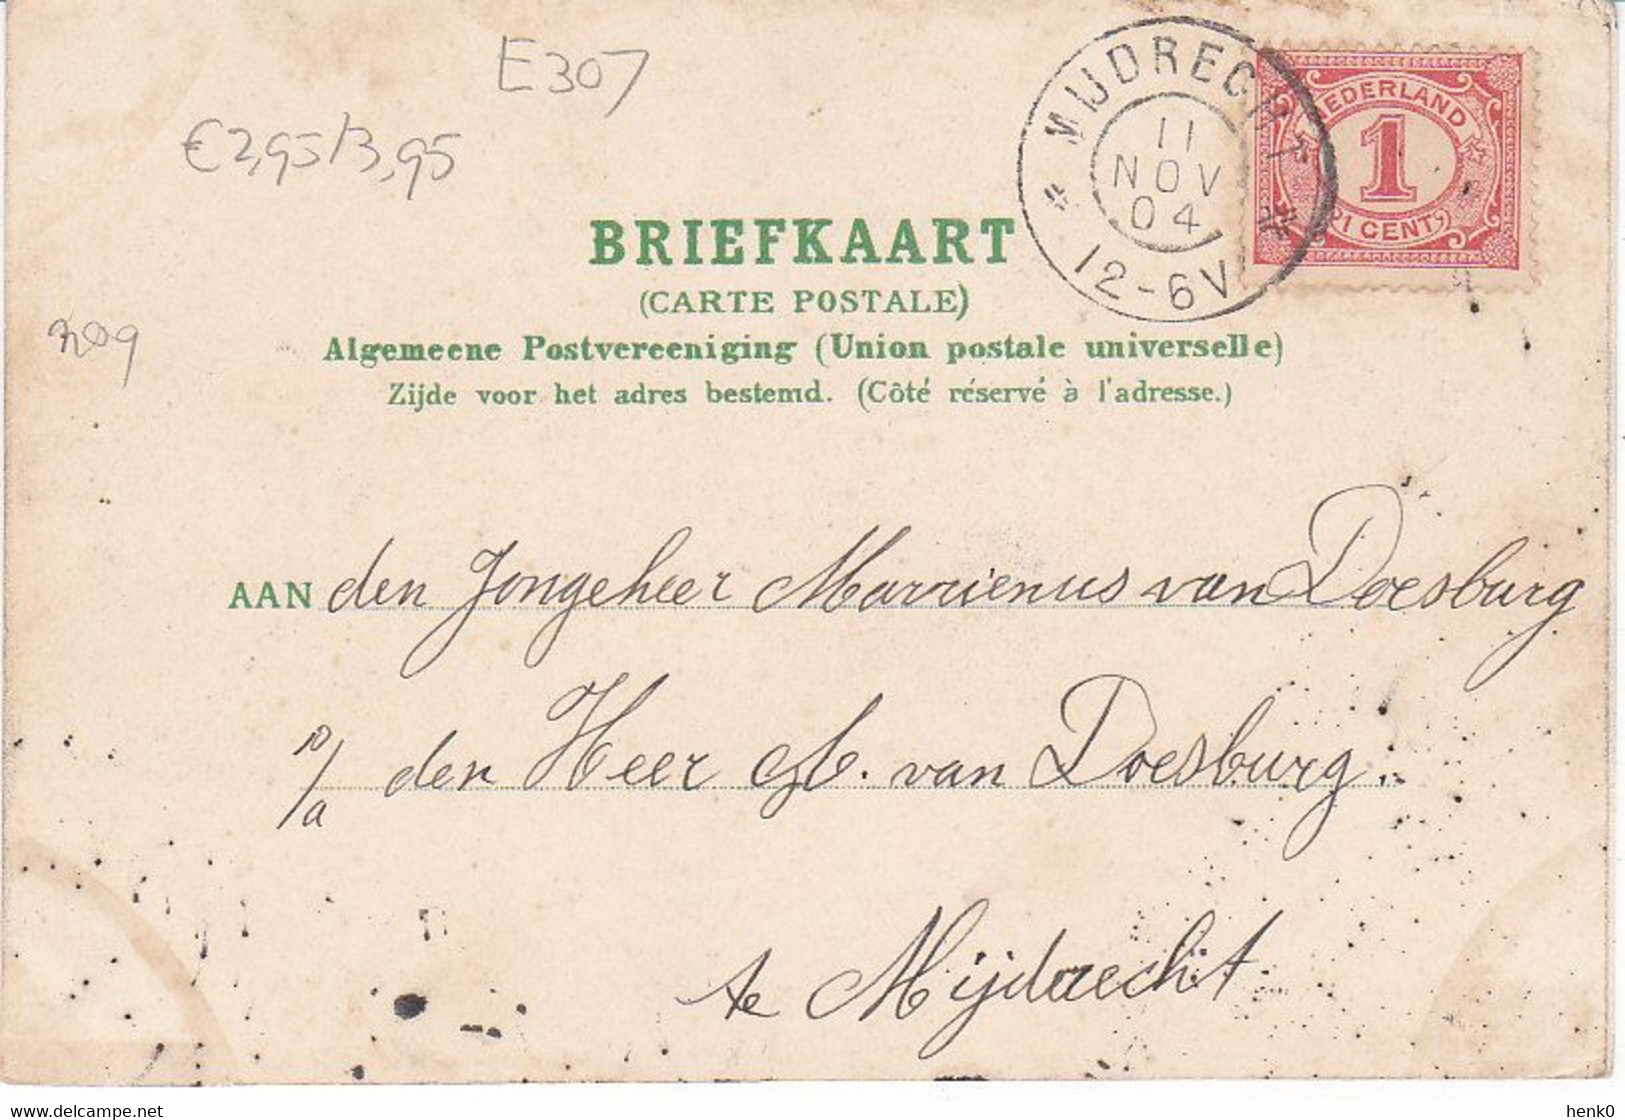 E307
€2,95/3,95
MIJDRECHT
11
NOV
04
12-6V
NEDERLAND
1
1 CENT
BRIEFKAART
(CARTE POSTALE)
Algemeene Postvereeniging (Union postale universelle)
Zijde voor het adres bestemd. (Côté réservé à l'adresse.)
AAN den Jongeheer Marrienus van Doesburg
p/a den Heer M. van Doesburg.
te Mijdrecht
delcampe.net
henk0